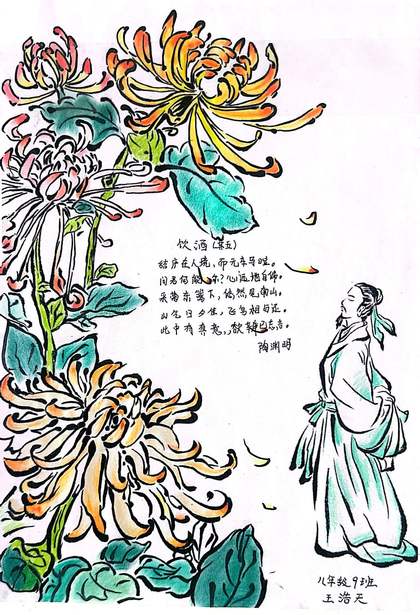 饮酒(其五)
结庐在人境,而无车马喧。
问君何能尔?心远地自偏。
采菊东篱下,悠然见南山。
山气日夕佳,飞鸟相与还。
此中有真意,欲辨已忘言。
陶渊明
八年级9班
王浩天